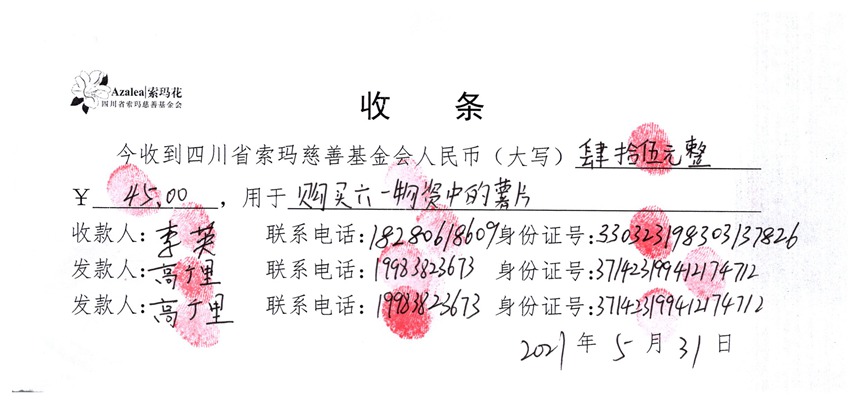 Azalea|索玛花
四川省索玛慈善基金会
收 条
今收到四川省索玛慈善基金会人民币（大写）肆拾伍元整
¥ 45.00 ，用于 购买六一物资中的薯片
收款人：李英 联系电话：18280618609 身份证号：330323198303137826
发款人：高于里 联系电话：19983823673 身份证号：371423199412174712
发款人：高于里 联系电话：19983823673 身份证号：371423199412174712
2021年5月31日